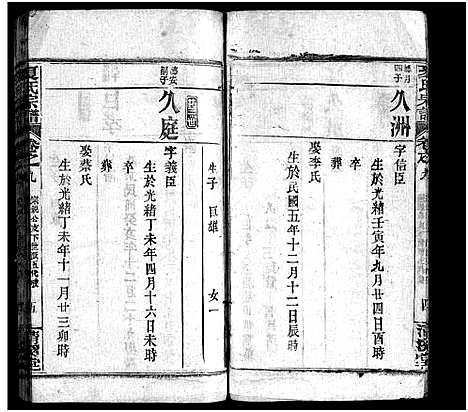 久洲
字信臣
生於光緒壬寅年九月廿四日酉時
卒
葬
娶李氏
生於民國五年十二月十二日辰時
卒
葬
生子 巨雄 女一
久庭
字義臣
生於光緒丁未年四月十六日未時
卒
葬
娶蔡氏
生於光緒丁未年十一月廿三卯時
夏氏宗譜
卷之九